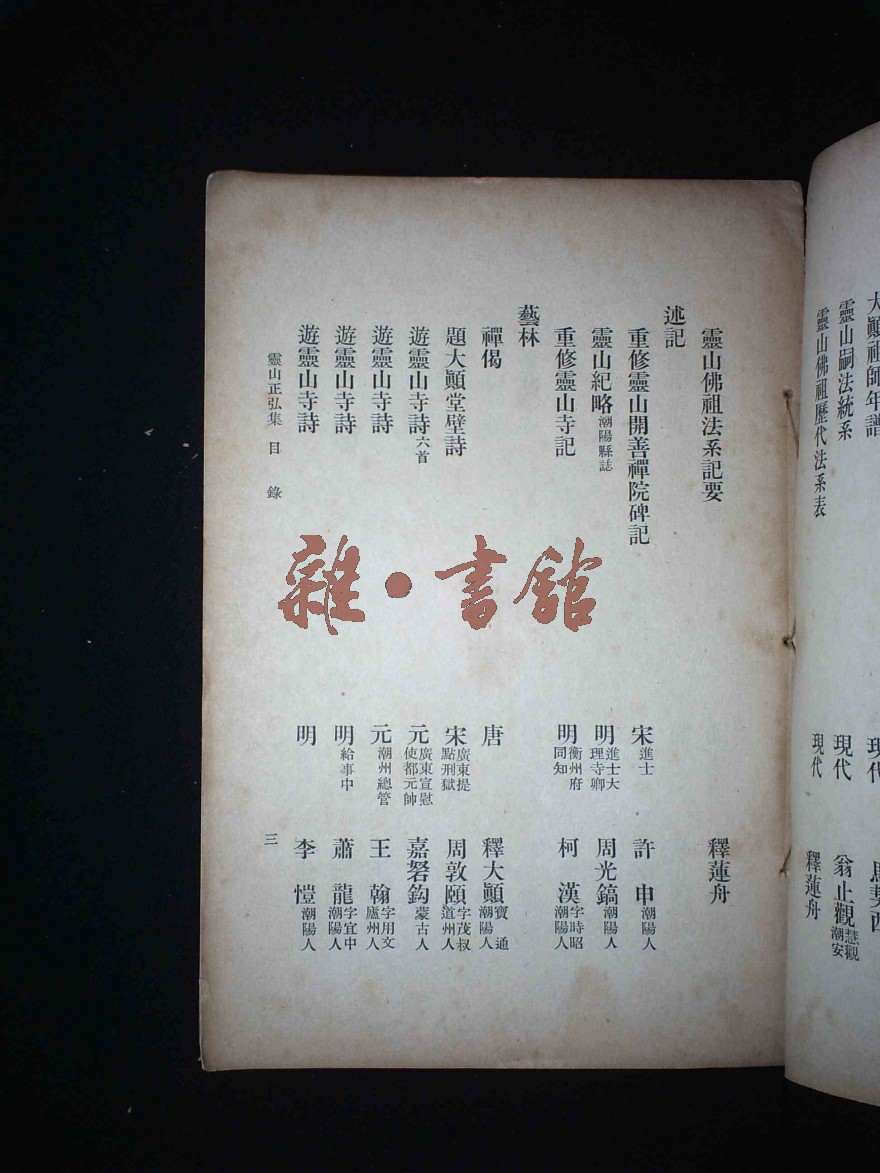 大顚祖師年譜 現代
靈山嗣法統系 現代 翁止觀慧觀潮安
靈山佛祖歷代法系表 現代 釋蓮舟
靈山佛祖法系記要 釋蓮舟
述記
重修靈山開善禪院碑記 宋進士 許申潮陽人
靈山紀略潮陽縣誌 明進士大理寺卿 周光鎬潮陽人
重修靈山寺記 明衡州府同知 柯漢字時昭潮陽人
藝林
禪偈 唐 釋大顚寶通潮陽人
題大顚堂壁詩 宋廣東提點刑獄 周敦頤字茂叔道州人
遊靈山寺詩六首 元廣東宣慰使都元帥 嘉努鈞蒙古人
遊靈山寺詩 元潮州總管 王翰字用文廬州人
遊靈山寺詩 明給事中 蕭龍字宜中潮陽人
遊靈山寺詩 明 李愷潮陽人
靈山正弘集 目錄 三
雜·書館